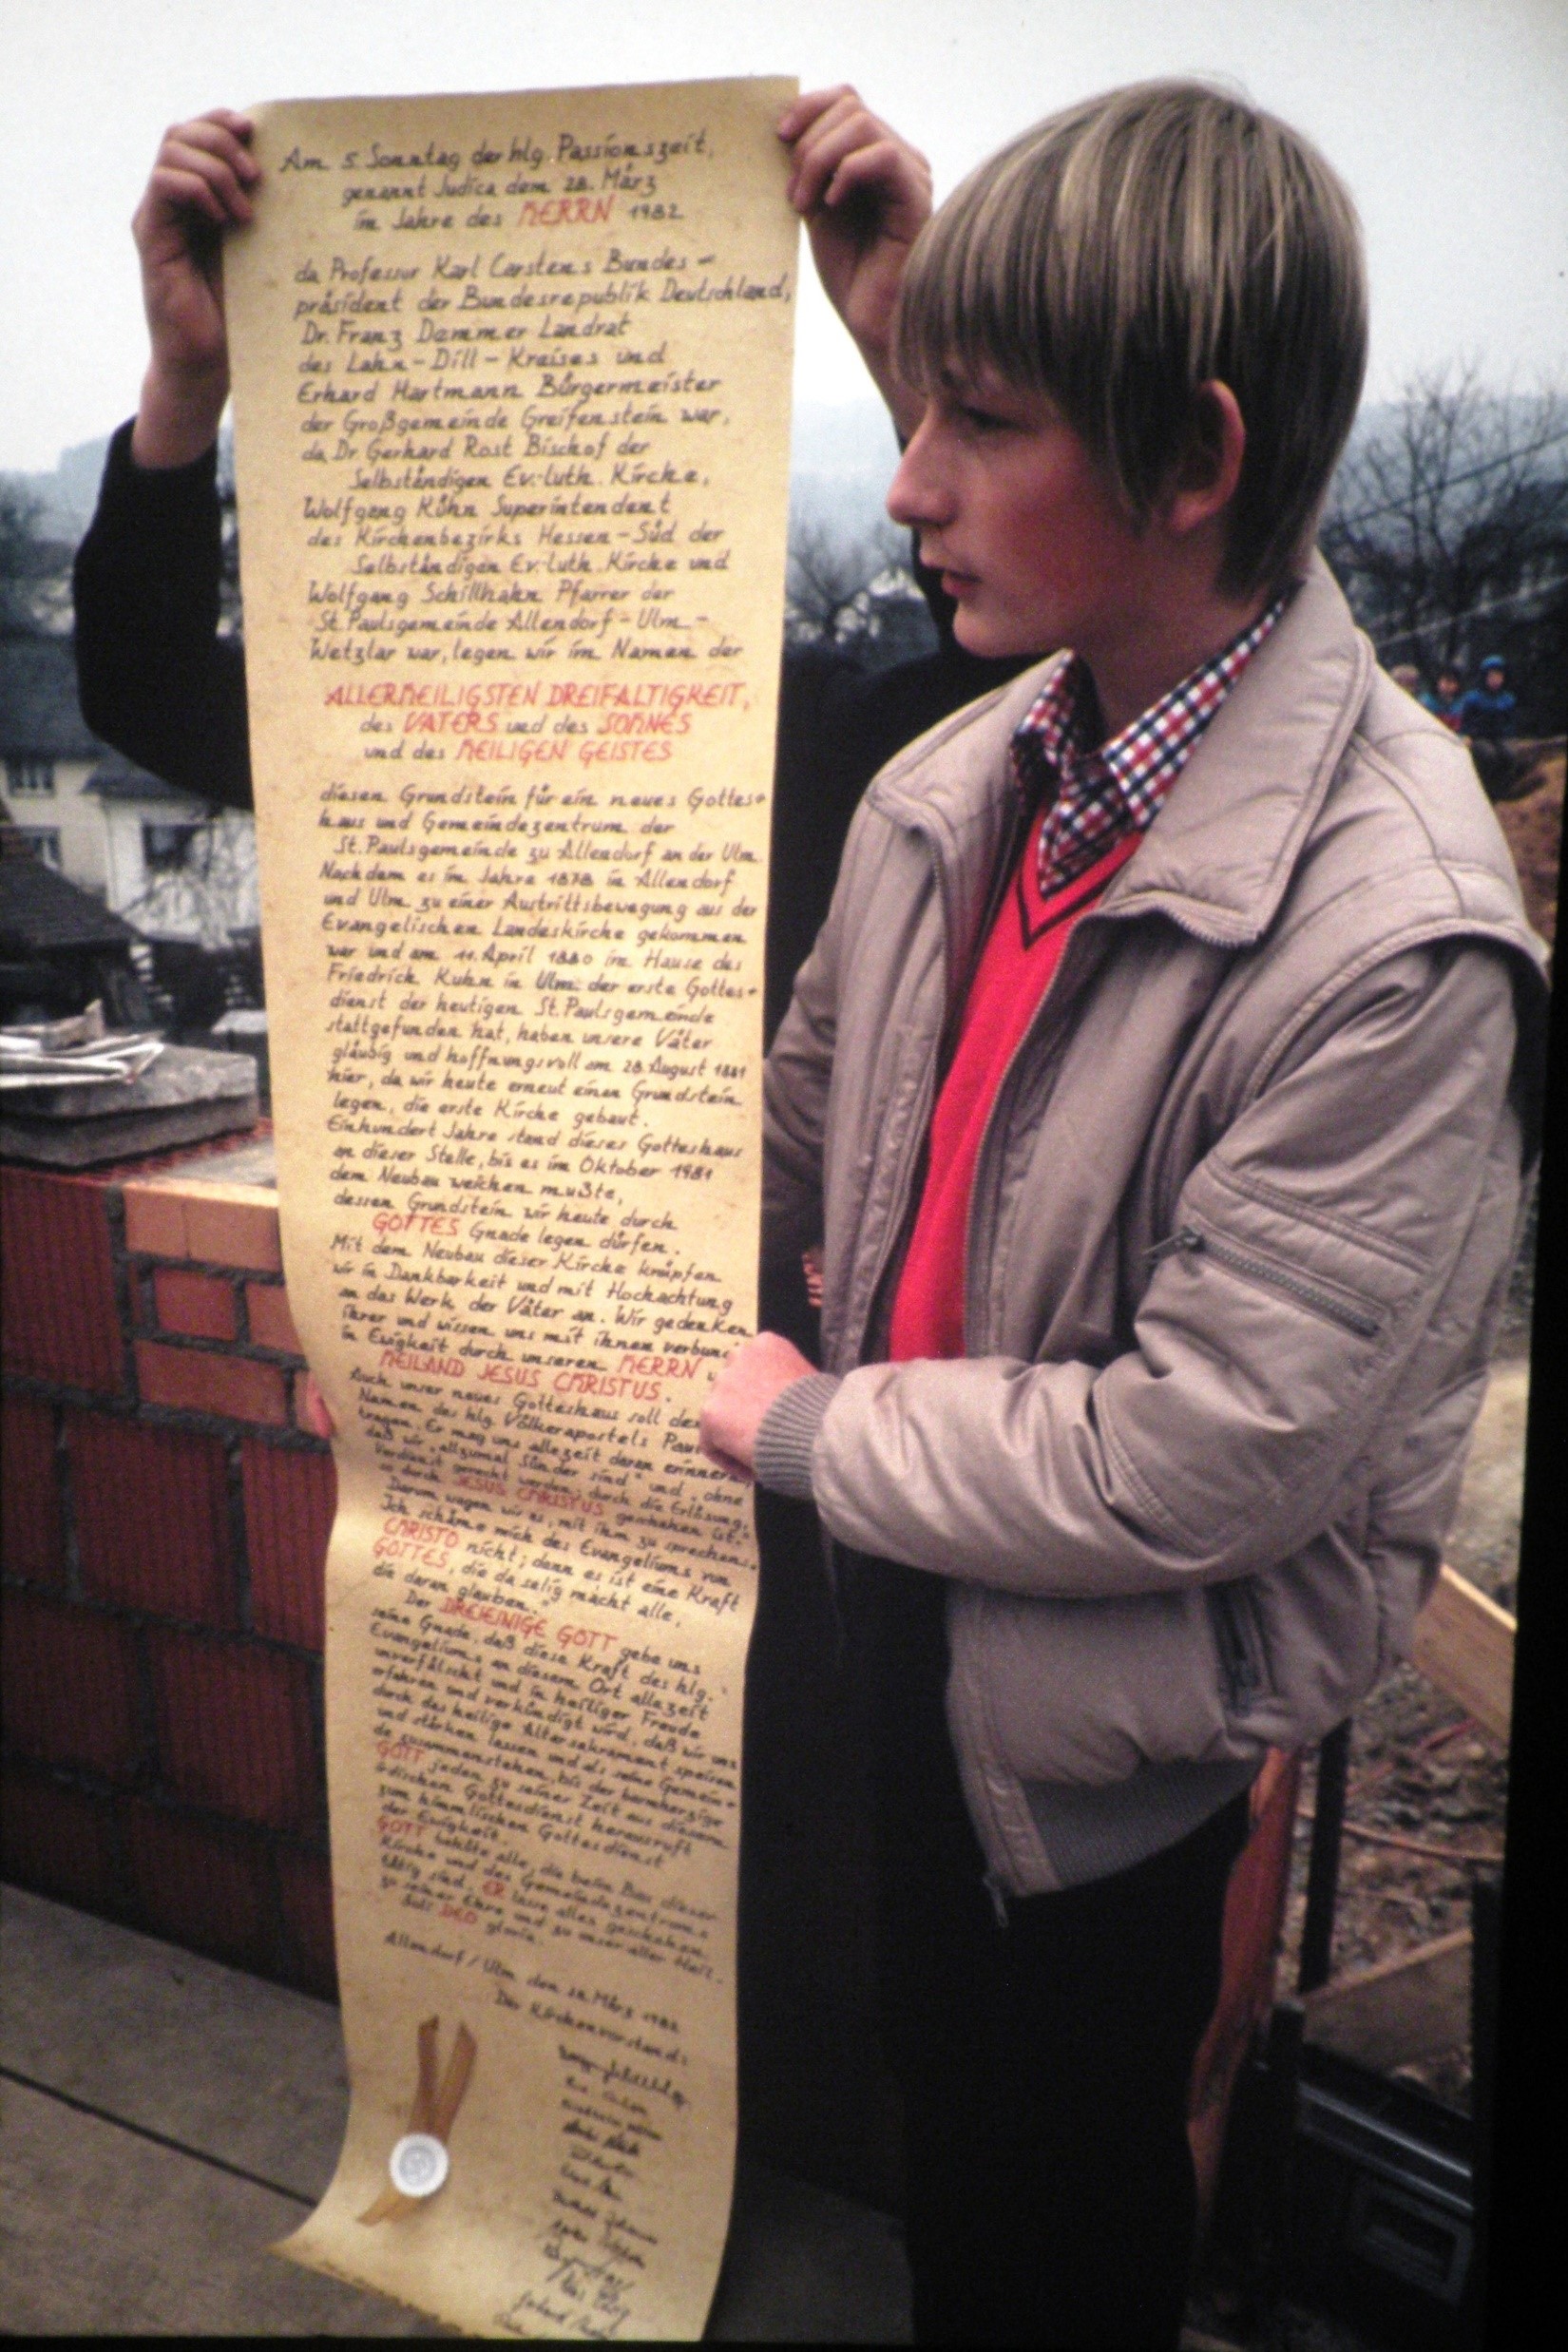 Am 5. Sonntag der hlg. Passionszeit,
genannt Judica dem 28. März
im Jahre des HERRN 1982
da Professor Karl Carstens Bundes-
präsident der Bundesrepublik Deutschland,
Dr. Franz Demmer Landrat
des Lahn-Dill-Kreises und
Erhard Hartmann Bürgermeister
der Großgemeinde Greifenstein war,
da Dr Gerhard Rost Bischof der
Selbständigen Ev.-luth. Kirche,
Wolfgang Kühn Superintendent
des Kirchenbezirks Hessen-Süd der
Selbständigen Ev.-luth. Kirche und
Wolfgang Schillhahn Pfarrer der
St. Paulsgemeinde Allendorf-Ulm-
Wetzlar war, legen wir im Namen der
ALLERHEILIGSTEN DREIFALTIGKEIT,
des VATERS und des SOHNES
und des HEILIGEN GEISTES
diesen Grundstein für ein neues Gottes-
haus und Gemeindezentrum der
St. Paulsgemeinde zu Allendorf an der Ulm.
Nachdem es im Jahre 1878 in Allendorf
und Ulm zu einer Austrittsbewegung aus der
Evangelischen Landeskirche gekommen
war und am 11. April 1880 im Hause des
Friedrich Kuhn in Ulm der erste Gottes-
dienst der heutigen St. Paulsgemeinde
stattgefunden hat, haben unsere Väter
gläubig und hoffnungsvoll am 28. August 1881
hier, da wir heute erneut einen Grundstein
legen, die erste Kirche gebaut.
Einhundert Jahre stand dieses Gotteshaus
an dieser Stelle, bis es im Oktober 1981
dem Neubau weichen mußte,
dessen Grundstein wir heute durch
GOTTES Gnade legen dürfen.
Mit dem Neubau dieser Kirche knüpfen
wir in Dankbarkeit und mit Hochachtung
an das Werk der Väter an. Wir gedenken
ihrer und wissen uns mit ihnen verbun
in Ewigkeit durch unseren HERRN u
HEILAND JESUS CHRISTUS.
Auch unser neues Gotteshaus soll den
Namen des hlg. Völkerapostels Pau
tragen. Er mag uns allezeit daran erinnern,
daß wir „allzumal Sünder sind" und „ohne
Verdienst gerecht werden, durch die Erlösung,
so durch JESUS CHRISTUS geschehen ist."
Darum wagen wir es, mit ihm zu sprechen:
Ich schäme mich des Evangeliums von
CHRISTO nicht; denn es ist eine Kraft
GOTTES, die da selig macht alle,
die daran glauben."
Der DREIEINIGE GOTT gebe uns
seine Gnade, daß diese Kraft des hlg.
Evangeliums an diesem Ort allezeit
unverfälscht und in heiliger Freude
erfahren und verkündigt wird, daß wir uns
durch das heilige Altarsakrament speisen
und stärken lassen und als seine Gemein-
de zusammenstehen, bis der barmherzige
GOTT jeden zu seiner Zeit aus diesem
irdischen Gottesdienst herausruft
zum himmlischen Gottesdienst
der Ewigkeit.
GOTT behüte alle, die beim Bau dieser
Kirche und des Gemeindezentrums
tätig sind. ER lasse alles geschehen
zu seiner Ehre und zu unser aller Heil.
Soli DEO gloria.
Allendorf / Ulm den 28. März 1982
Der Kirchenvorstand: